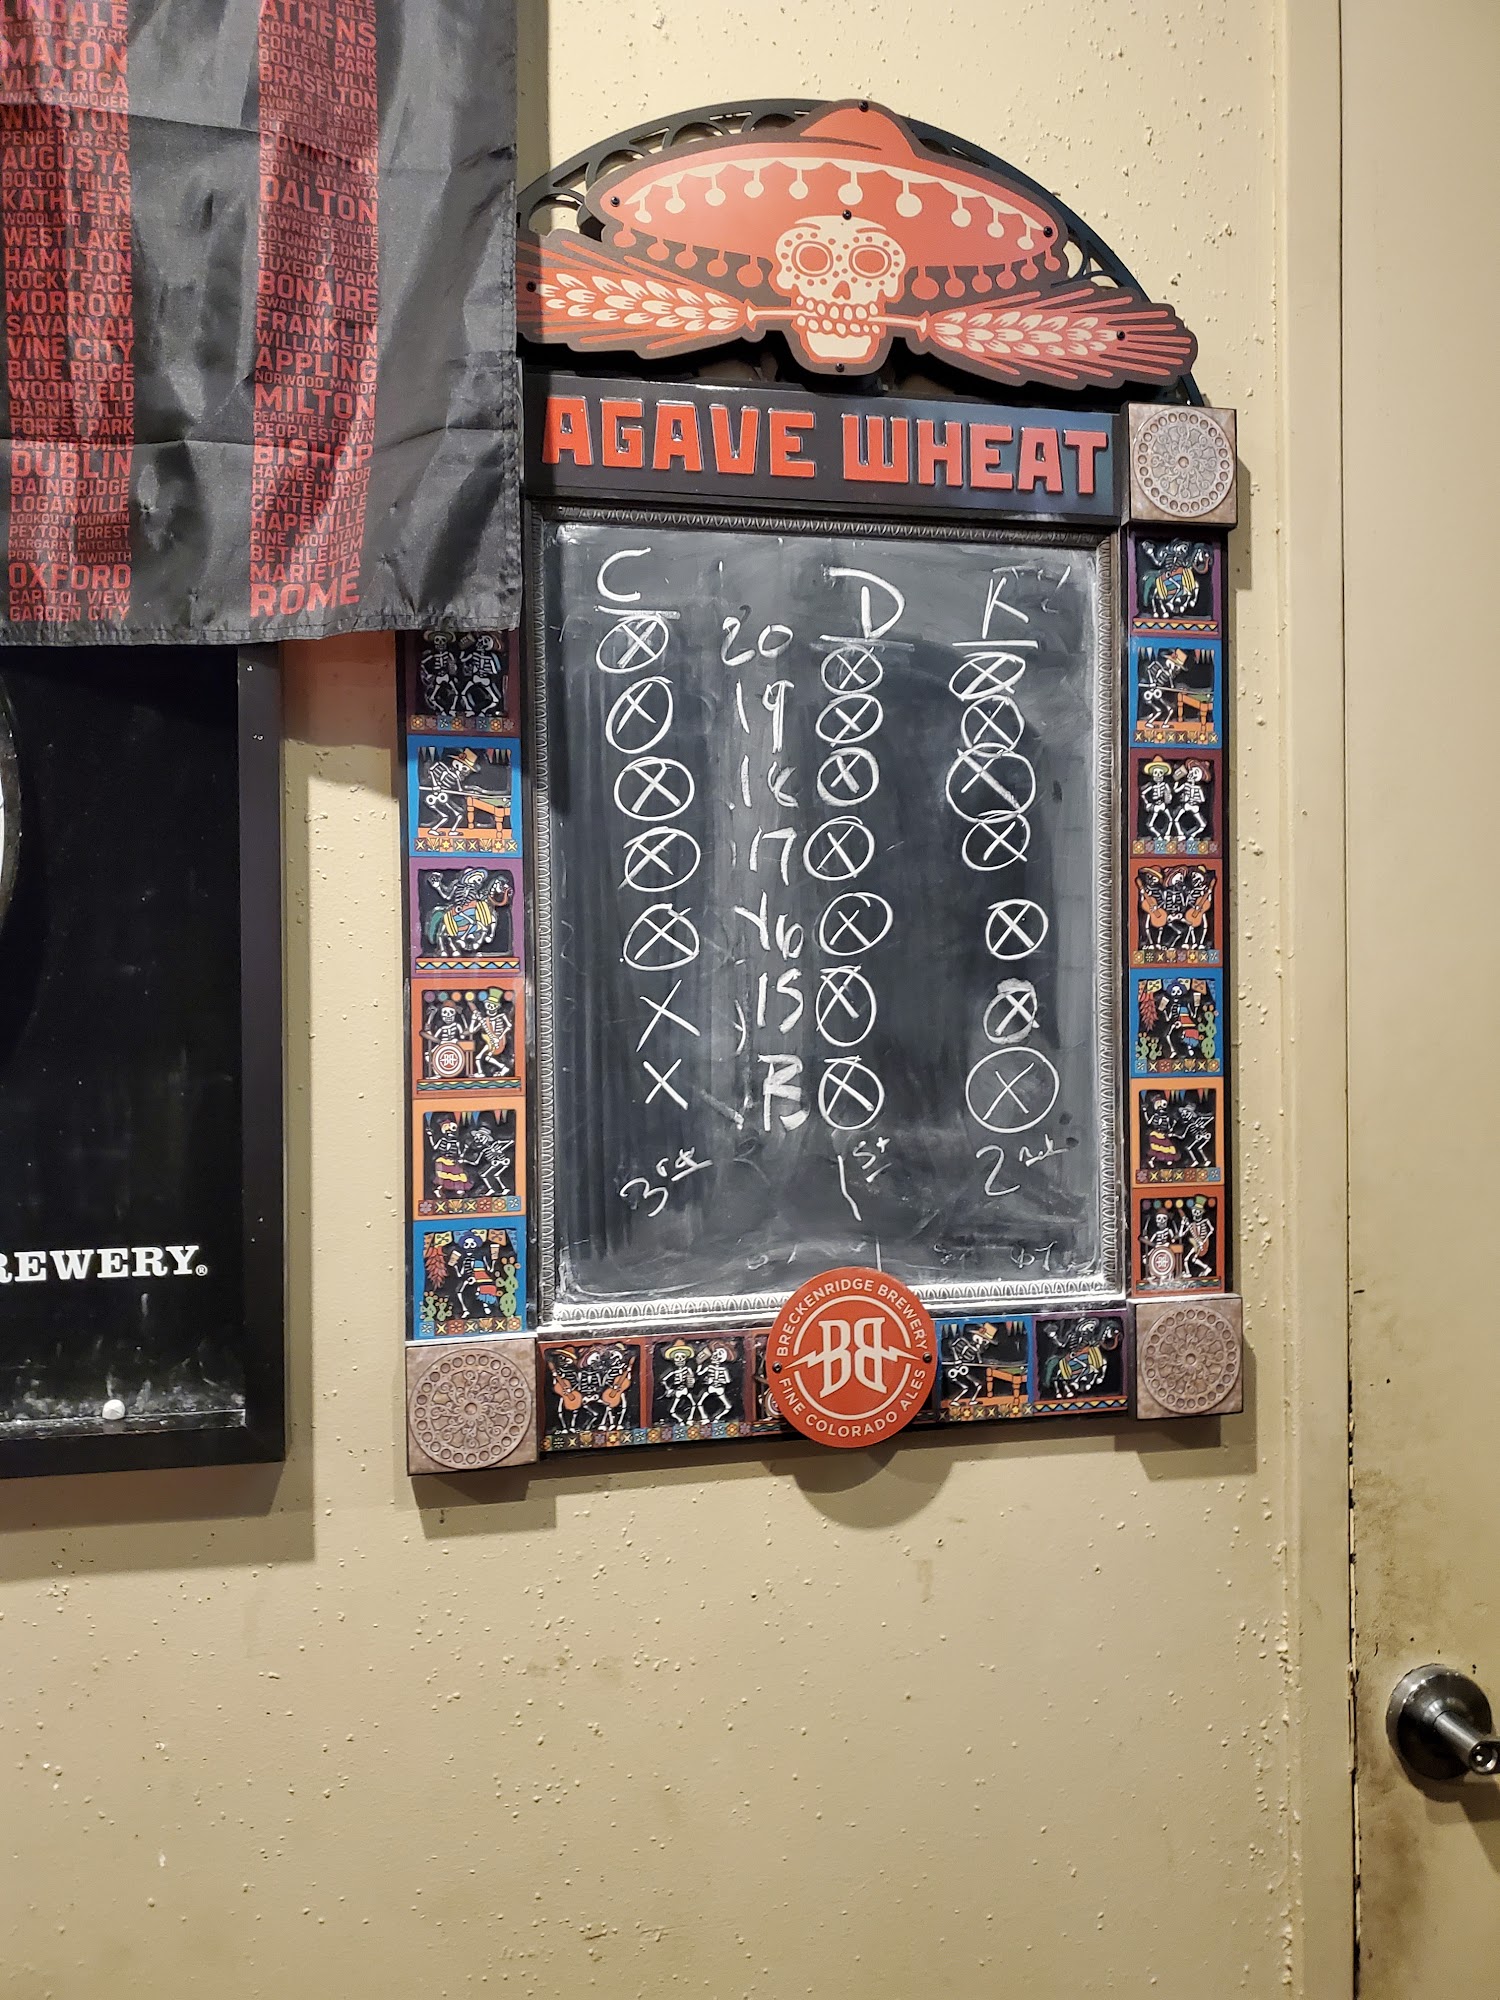 INDALE
RIDGEDALE PARK
MACON
VILLA RICA
UNITE & CONQUER
WINSTON
PENDERGRASS
AUGUSTA
BOLTON HILLS
KATHLEEN
WOODLAND HILLS
WESTLAKE
HAMILTON
ROCKY FACE
MORROW
SAVANNAH
VINE CITY
BLUE RIDGE
WOODFIELD
BARNESVILLE
FOREST PARK
CARTERSVILLE
DUBLIN
BAINBRIDGE
LOGANVILLE
LOOKOUT MOUNTAIN
PEYTON FOREST
MARGARET MITCHELL
PORT WENTWORTH
OXFORD
CAPITOL VIEW
GARDEN CITY
ATHENS
NORMAN PARK
COLLEGE PARK
DOUGLASVILLE
BRASELTON
UNITE & CONQUER
AVONDALE ESTATES
ROSEDALE HEIGHTS
COVINGTON
SOUTH ATLANTA
DALTON
TECHNOLOGY SQUARE
LAWRENCEVILLE
COLONIAL HOMES
BETMAR LAVILLA
TUXEDO PARK
BONAIRE
SWALLOW CIRCLE
FRANKLIN
WILLIAMSON
APPLING
NORWOOD MANOR
MILTON
PEACHTREE CENTER
PEOPLESTOWN
BISHOP
HAYNES MANOR
HAZLEHURST
CENTERVILLE
HAPEVILLE
PINE MOUNTAIN
BETHLEHEM
MARIETTA
ROME
REWERY®
AGAVE WHEAT
C D K
X 20 X X
X 19 X X
X 18 X X
X 17 X X
X 16 X X
X 15 X X
X B X X
3rd 1st 2nd
BRECKENRIDGE BREWERY
BB
FINE COLORADO ALES